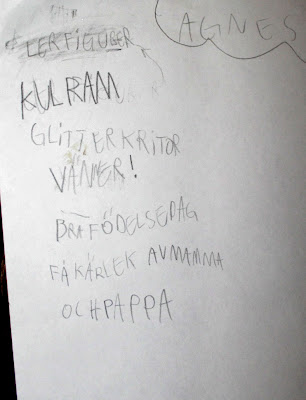 AGNES
LERFIGURER
KULRAM
GLITTERKRITOR
VÄNNER!
BRA FÖDELSEDAG
FÅ KÄRLEK AV MAMMA
OCH PAPPA